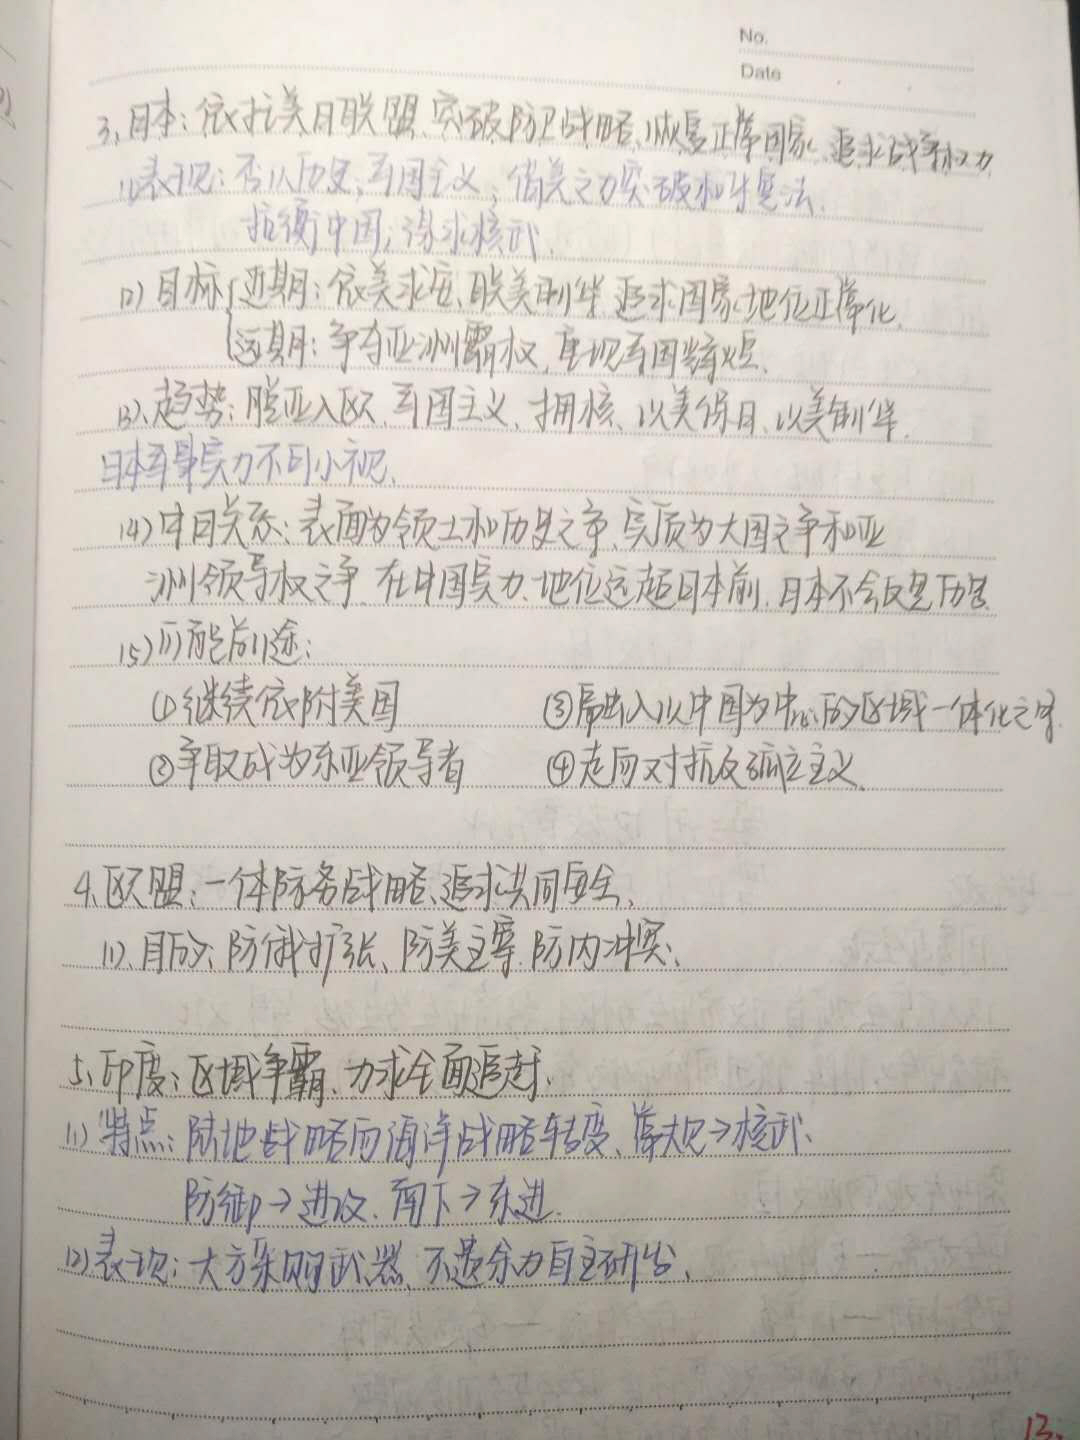 No.
Date
3、日本：依托美日联盟、突破防卫战略、恢复正常国家、追求战争权力
(1)表现：否认历史、军国主义；借美之力突破和平宪法、
抗衡中国；谋求核武、
(2)目标 近期：依美求安、联美制华 追求国家地位正常化、
远期：争夺亚洲霸权、重现军国辉煌、
(3)、趋势：脱亚入欧、军国主义、拥核、以美保日、以美制华、
日本军事实力不可小视、
(4)中日关系：表面为领土和历史之争、实质为大国之争和亚
洲领导权之争、在中国实力、地位远超日本前、日本不会反思历史
(5)可能前途：
①继续依附美国 ③融入以中国为中心的区域一体化之中
②争取成为东亚领导者 ④走向对抗及孤立主义、
4、欧盟：一体防务战略、追求共同安全、
(1)、目的：防俄扩张、防美主宰、防内冲突、
5、印度：区域争霸、力求全面追赶、
(1)特点：陆地战略向海洋战略转变、常规→核武、
防御→进攻、南下→东进、
(2)表现：大力采购武器、不遗余力自主研发、
13.